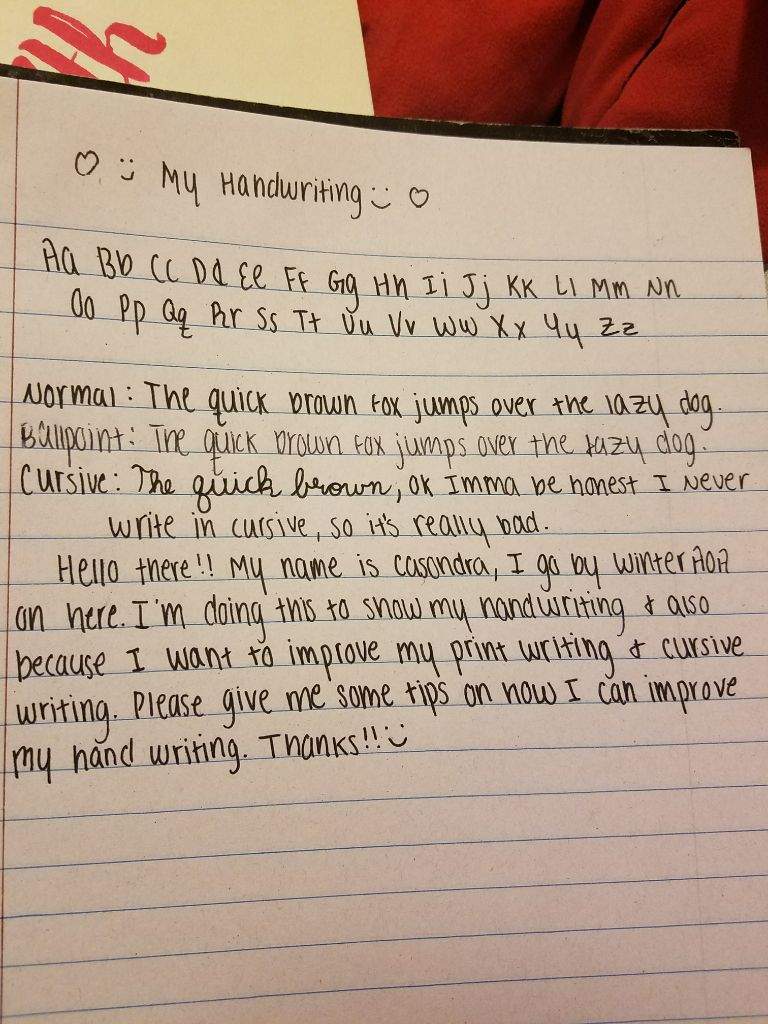 ♡ :) My Handwriting :) ♡
Aa Bb Cc Dd Ee Ff Gg Hh Ii Jj Kk Ll Mm Nn
Oo Pp Qq Rr Ss Tt Uu Vv Ww Xx Yy Zz
Normal: The quick brown fox jumps over the lazy dog.
Ballpoint: The quick brown fox jumps over the lazy dog.
Cursive: The quick brown, ok Imma be honest I Never
write in cursive, so it's really bad.
Hello there!! My name is Casondra, I go by WinterAOA
on here. I'm doing this to show my handwriting & also
because I want to improve my print writing & cursive
writing. Please give me some tips on how I can improve
my hand writing. Thanks!! :)